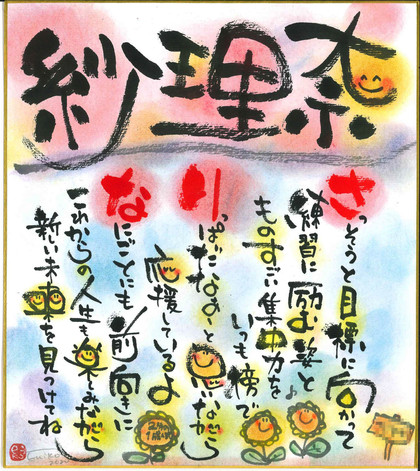 紗理奈
さっそうと目標に向かって
練習に励む姿と
ものすごい集中力を
いつも傍で
りっぱだなぁ〜と思いながら
応援しているよ
なにごとにも前向きに
これからの人生も楽しみながら
新しい未来を見つけてね